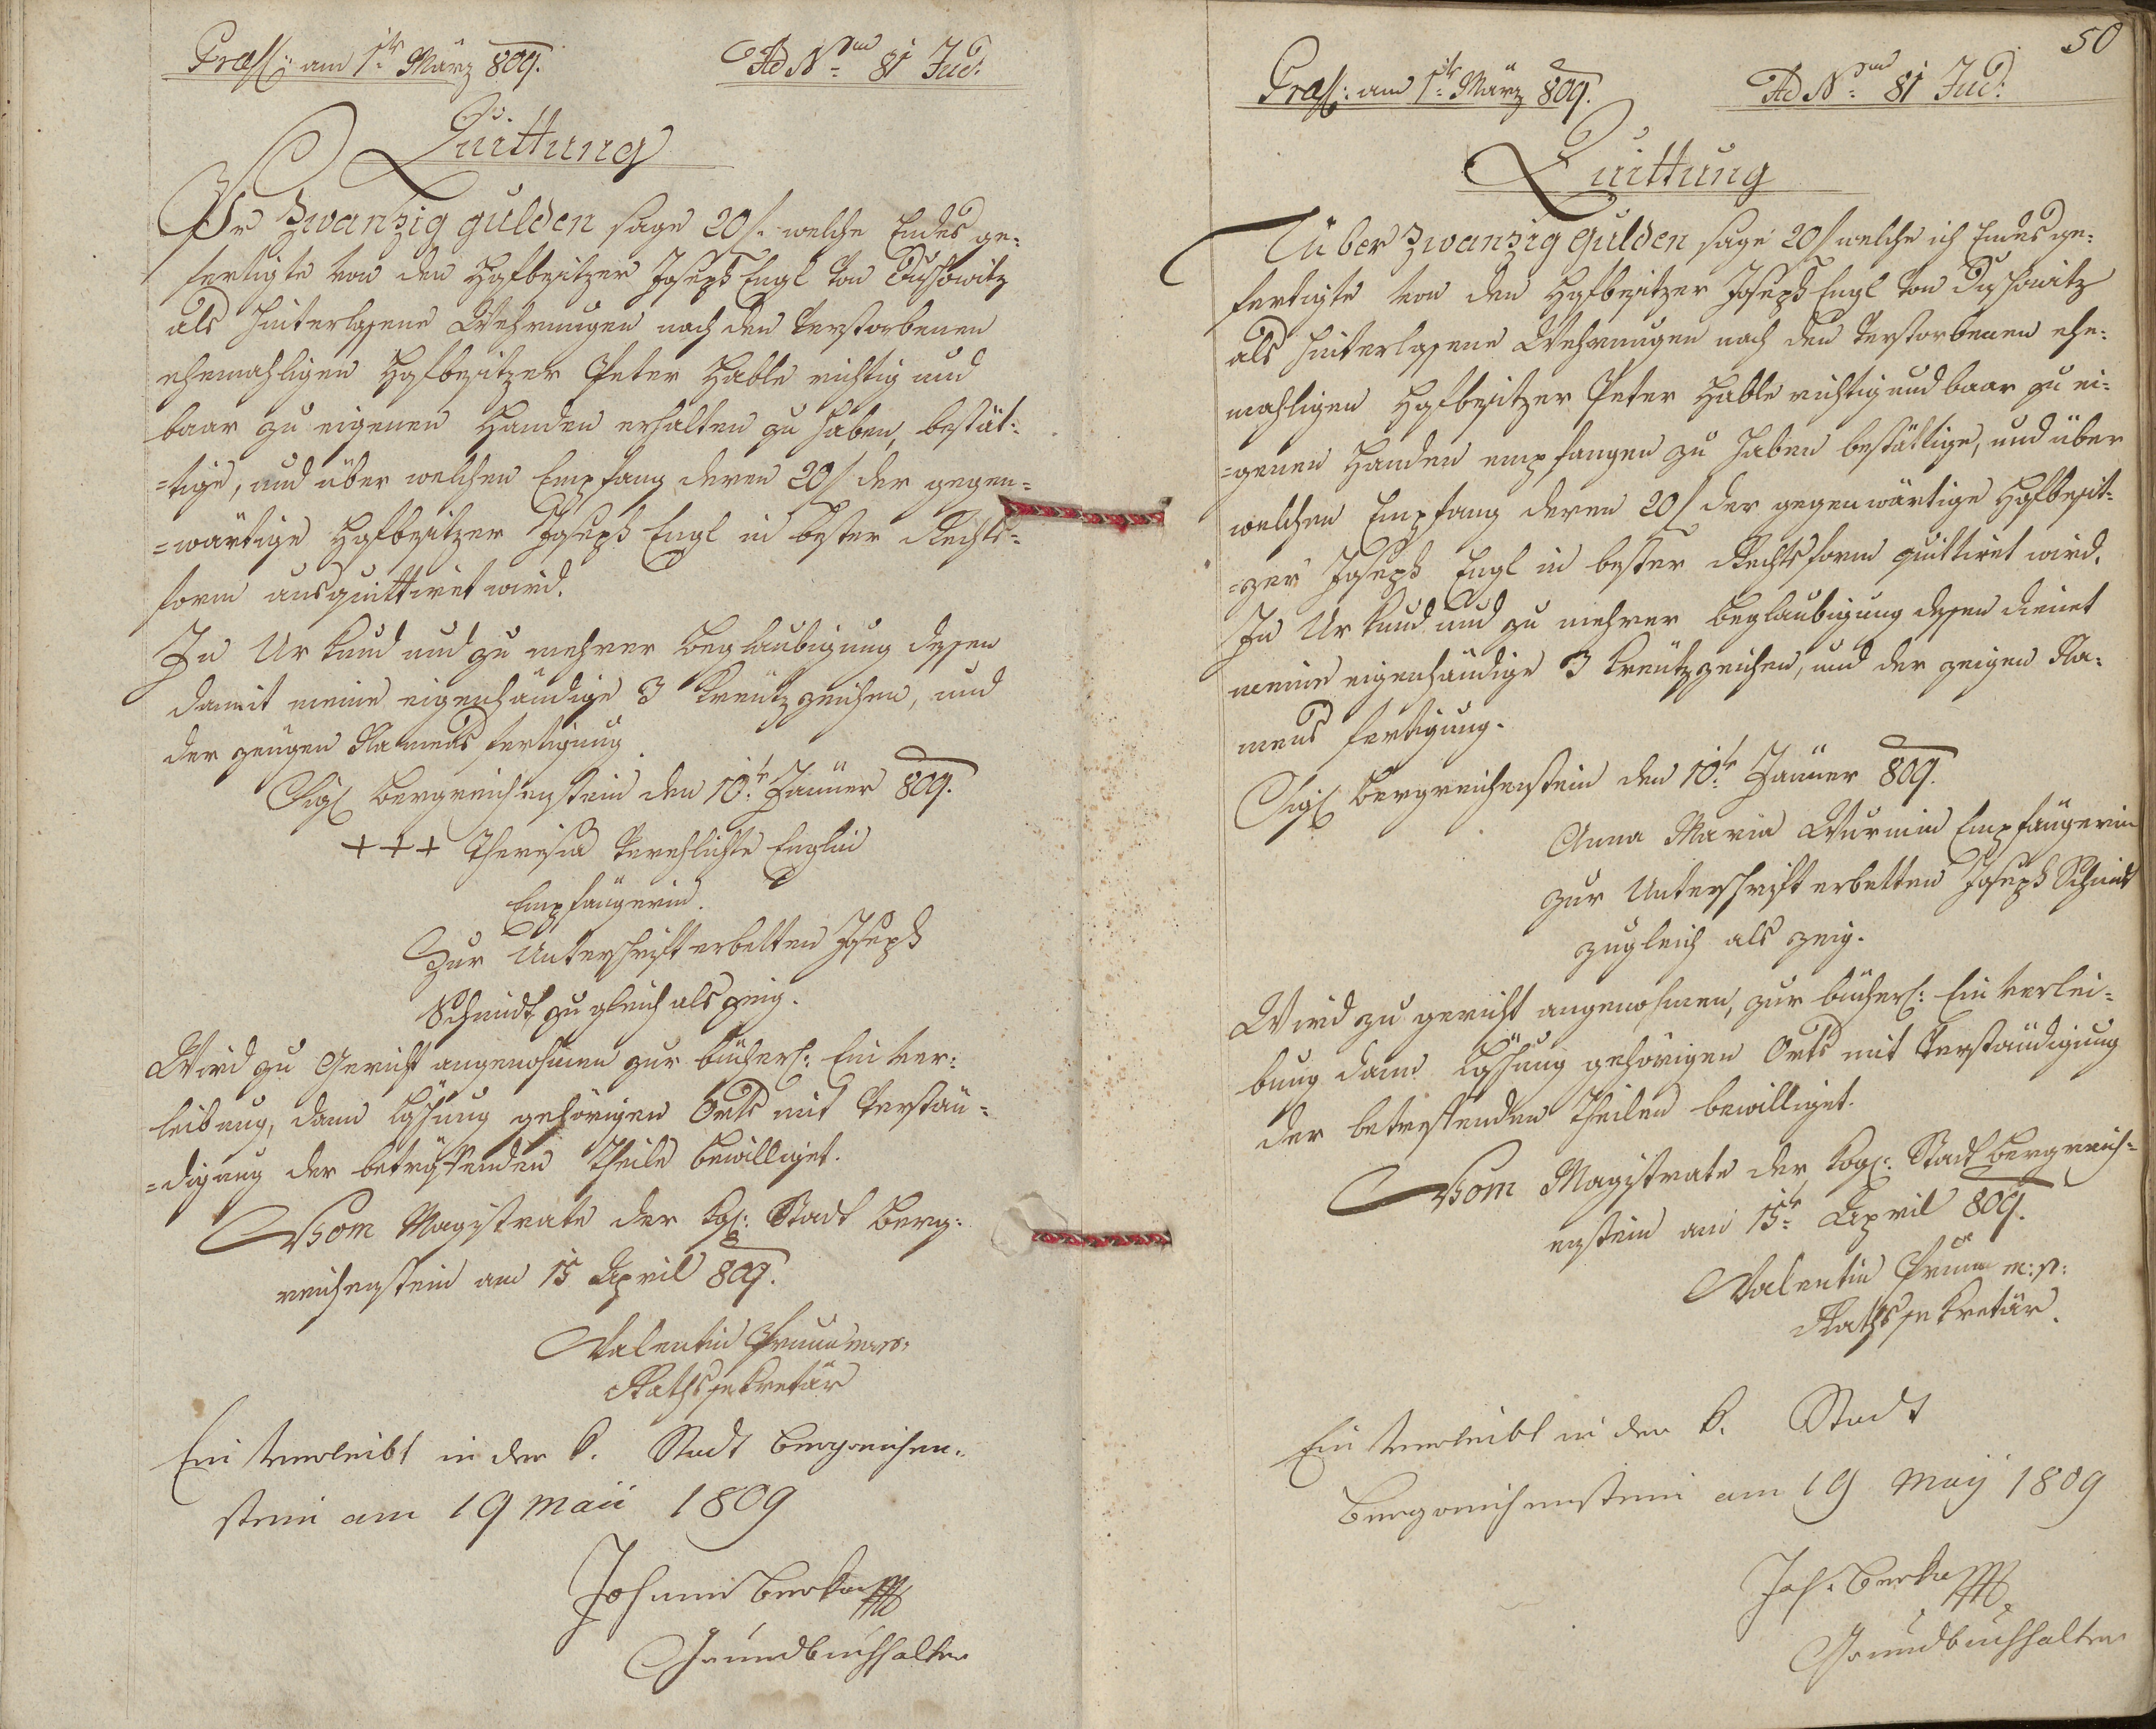 Praes: am 1te März 809.
Ad Num 81 Jud.
Quittung
Pr Zwanzig gulden sage 20 f. welche Endes ge-
fertigte von den Hofbesitzer Joseph Engl von
als hinterlassene Wehrungen nach den verstorbenen
ehemahligen Hofbesitzer Peter Hable richtig und
baar zu eigenen Handen erhalten zu haben, bestät-
=tige, und über welchen Empfang deren 20 f der gegen=
=wärtige Hofbesitzer Joseph Engl in bester Rechts=
form ausquittiret wird.
In Urkund und zu mehrer Beglaubigung dessen
damit meine eigenhändige 3 Kreutzzeichen, und
der zeugen Namens fertigung.
Sigl Bergreichenstein den 10te Jänner 809.
+++ Theresia verehlichte Englin
Empfängerin.
Zur Unterschrift erbetten Joseph
Schmidt zugleich als zeig.
Wird zu Gericht angenohmen zur bücherl: Einver-
leibung, dann Löschung gehörigen Orts mit Verstän=
=digung der betreffenden Theile bewilliget.
Vom Magistrate der kgl: Stadt Berg-
reichenstein am 15 April 809.
Valentin
Rathssekretär
Einverleibt in der k. Stadt Bergreichen-
stein am 19 Maii 1809
Johann Berka
Grundbuchhalter
50
Praes: am 1te März 809.
Ad Num 81 Jud:
Quittung
Über Zwanzig Gulden sage 20 f welche ich Endes ge-
fertigte von den Hofbesitzer Joseph Engl von
als hinterlassene Wehrungen nach den verstorbenen ehe-
mahligen Hofbesitzer Peter Hable richtig und baar zu ei-
=genen Handen empfangen zu haben bestättige, und über
welchen Empfang deren 20 f der gegenwärtige Hofbesit-
=zer Joseph Engl in bester Rechtsform quittiret wird.
In Urkund und zu mehrer Beglaubigung dessen dienet
meine eigenhändige 3 Kreutzzeichen, und der zeigen Na-
mens fertigung.
Sigl Bergreichenstein den 10te Jänner 809.
Anna Maria Wurmin Empfängerin
zur Unterschrift erbetten Joseph Schmidt
zugleich als zeig.
Wird zu gericht angenohmen, zur bücherl: Einverlei-
bung dann Löschung gehörigen Orts mit Verständigung
der betreffenden Theilen bewilliget.
Vom Magistrate der kögl: Stadt Bergreich-
enstein am 15te April 809.
Valentin m:p:
Rathssekretär.
Einverleibt in der k. Stadt
Bergreichenstein am 19 Maij 1809
Joh. Berka
Grundbuchhalter